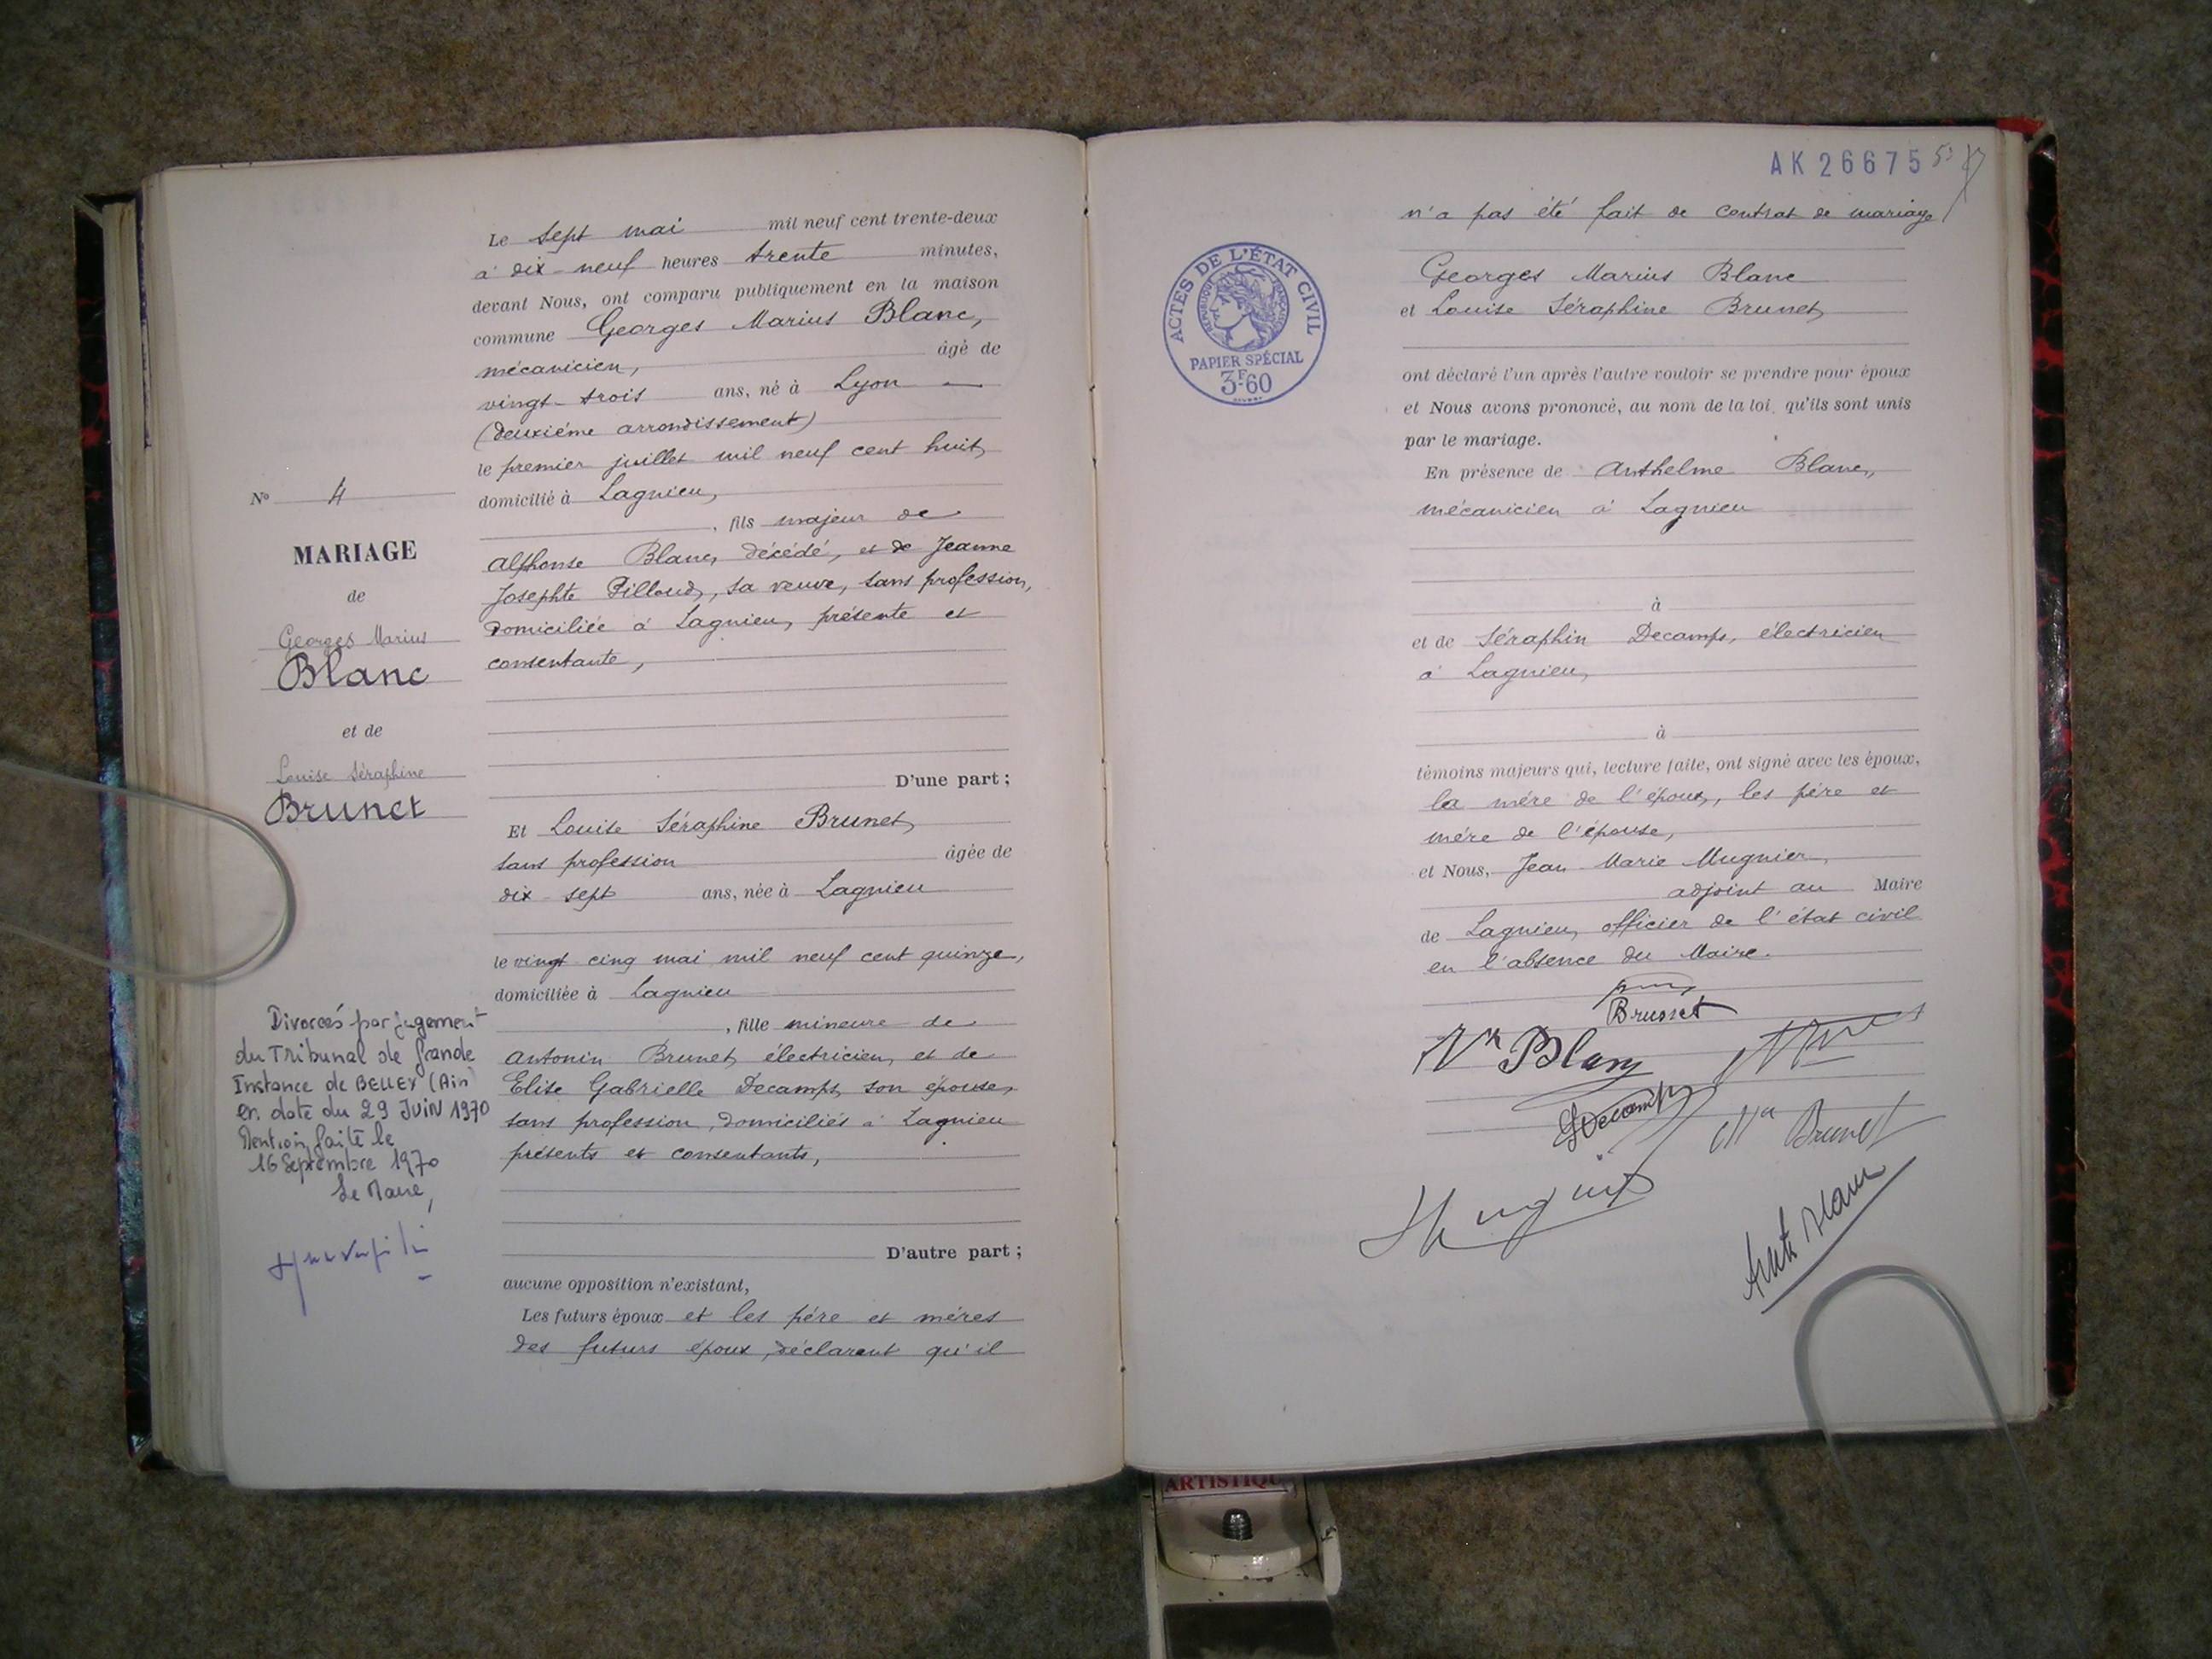 Le sept mai mil neuf cent trente-deux
à dix-neuf heures trente minutes,
devant Nous, ont comparu publiquement en la maison
commune Georges Marius Blanc,
mécanicien, âgé de
vingt-trois ans, né à Lyon
(deuxième arrondissement)
le premier juillet mil neuf cent huit,
domicilié à Lagnieu,
, fils majeur de
Alphonse Blanc, décédé, et de Jeanne
Josephte Pilloud, sa veuve, sans profession,
domiciliée à Lagnieu, présente et
consentante,
D'une part ;
Et Louise Séraphine Brunet,
sans profession âgée de
dix-sept ans, née à Lagnieu
le vingt-cinq mai mil neuf cent quinze,
domiciliée à Lagnieu
, fille mineure de
Antonin Brunet, électricien, et de
Elise Gabrielle Decamps, son épouse,
sans profession, domiciliés à Lagnieu
présents et consentants,
D'autre part ;
aucune opposition n'existant,
Les futurs époux et les père et mères
des futurs époux, déclarent qu'il
No 4
MARIAGE
de
Georges Marius
Blanc
et de
Louise Séraphine
Brunet
Divorcés par jugement
du Tribunal de Grande
Instance de BELLEY (Ain)
en date du 29 JUIN 1970
Mention faite le
16 Septembre 1970
Le Maire,
AK 26675
n'a pas été fait de contrat de mariage
Georges Marius Blanc
et Louise Séraphine Brunet,
ont déclaré l'un après l'autre vouloir se prendre pour époux
et Nous avons prononcé, au nom de la loi, qu'ils sont unis
par le mariage.
En présence de Anthelme Blanc,
mécanicien à Lagnieu
à
et de Séraphin Decamps, électricien
à Lagnieu,
à
témoins majeurs qui, lecture faite, ont signé avec les époux,
la mère de l'époux, les père et
mère de l'épouse,
et Nous, Jean Marie Mugnier,
adjoint au Maire
de Lagnieu, officier de l'état civil
en l'absence du Maire.
Brunet
Vve Blanc
SDecamps
Brunet
ACTES DE L'ÉTAT CIVIL
RÉPUBLIQUE FRANÇAISE
PAPIER SPÉCIAL
3F60
ARTISTIQUE